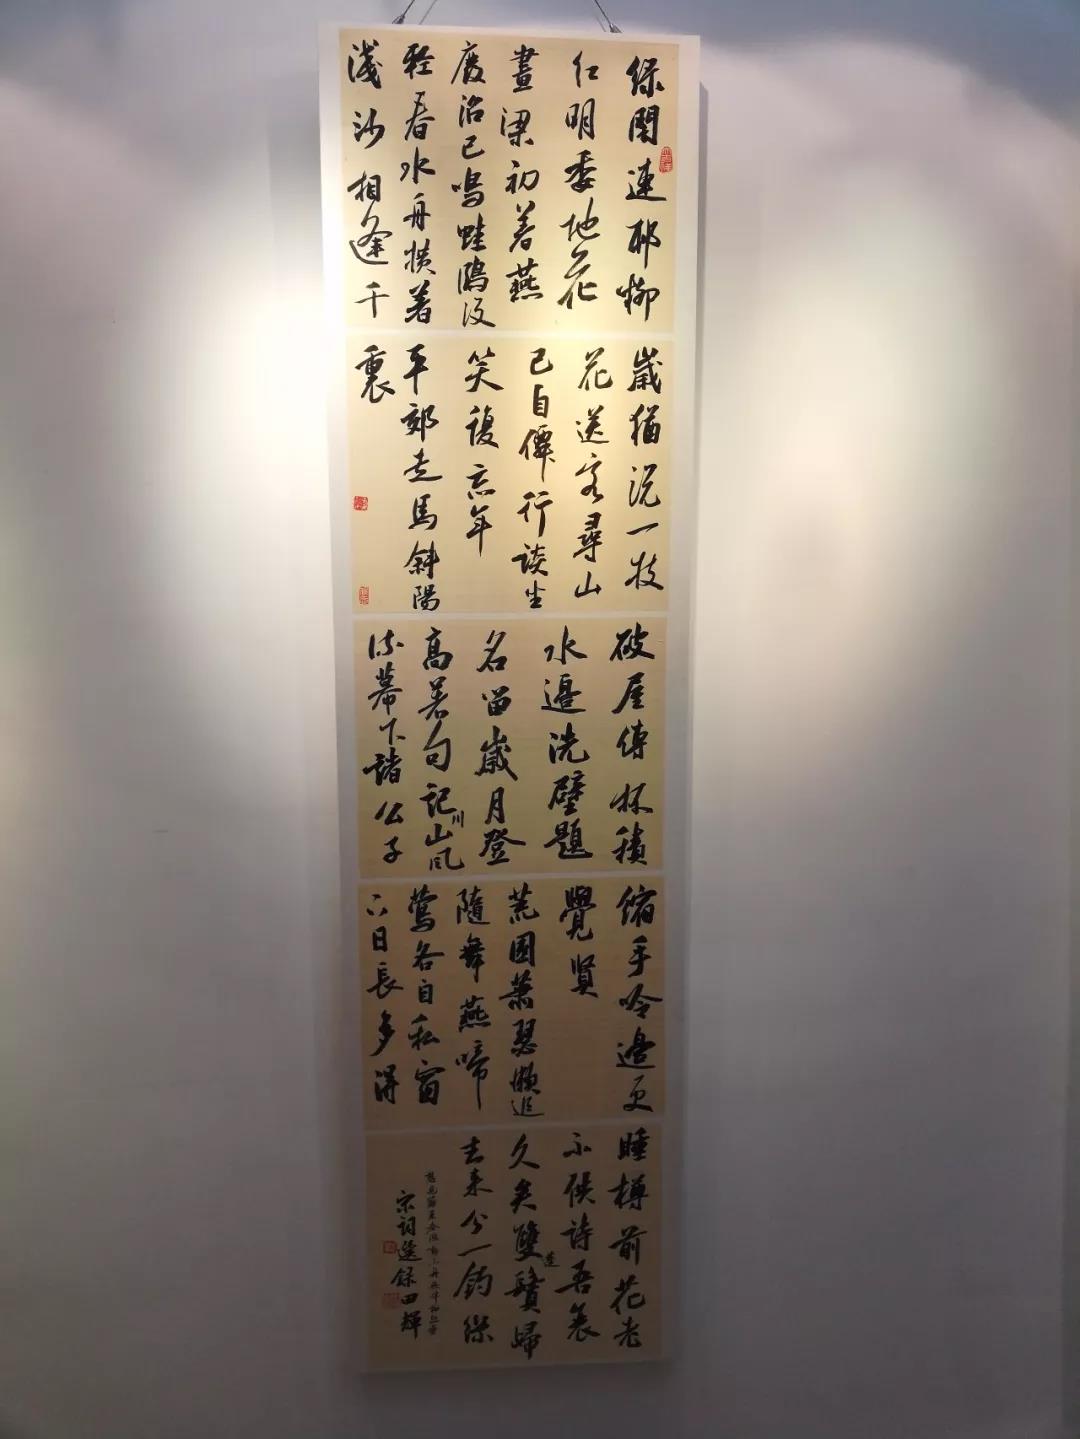 綠闇連邨柳
紅明委地花
畫梁初著燕
廢沼已鳴蛙鷗沒
輕春水舟橫著
淺沙相逢千
歲猶說一枝
花送客尋山
已自僊行談坐
笑復忘年
平郊走馬斜陽
裏
破屋傳杯積
水邊洗壁題
名留歲月登
高著句記山川風
流幕下諸公子
縮手吟邊更
覺賢
荒園蕭瑟懶追
隨舞燕啼
鶯各自私窗
下日長多得
睡樽前花老
不供詩吾衰
久矣雙蓬鬢歸
去來兮一釣絲
宋詞選錄田輝